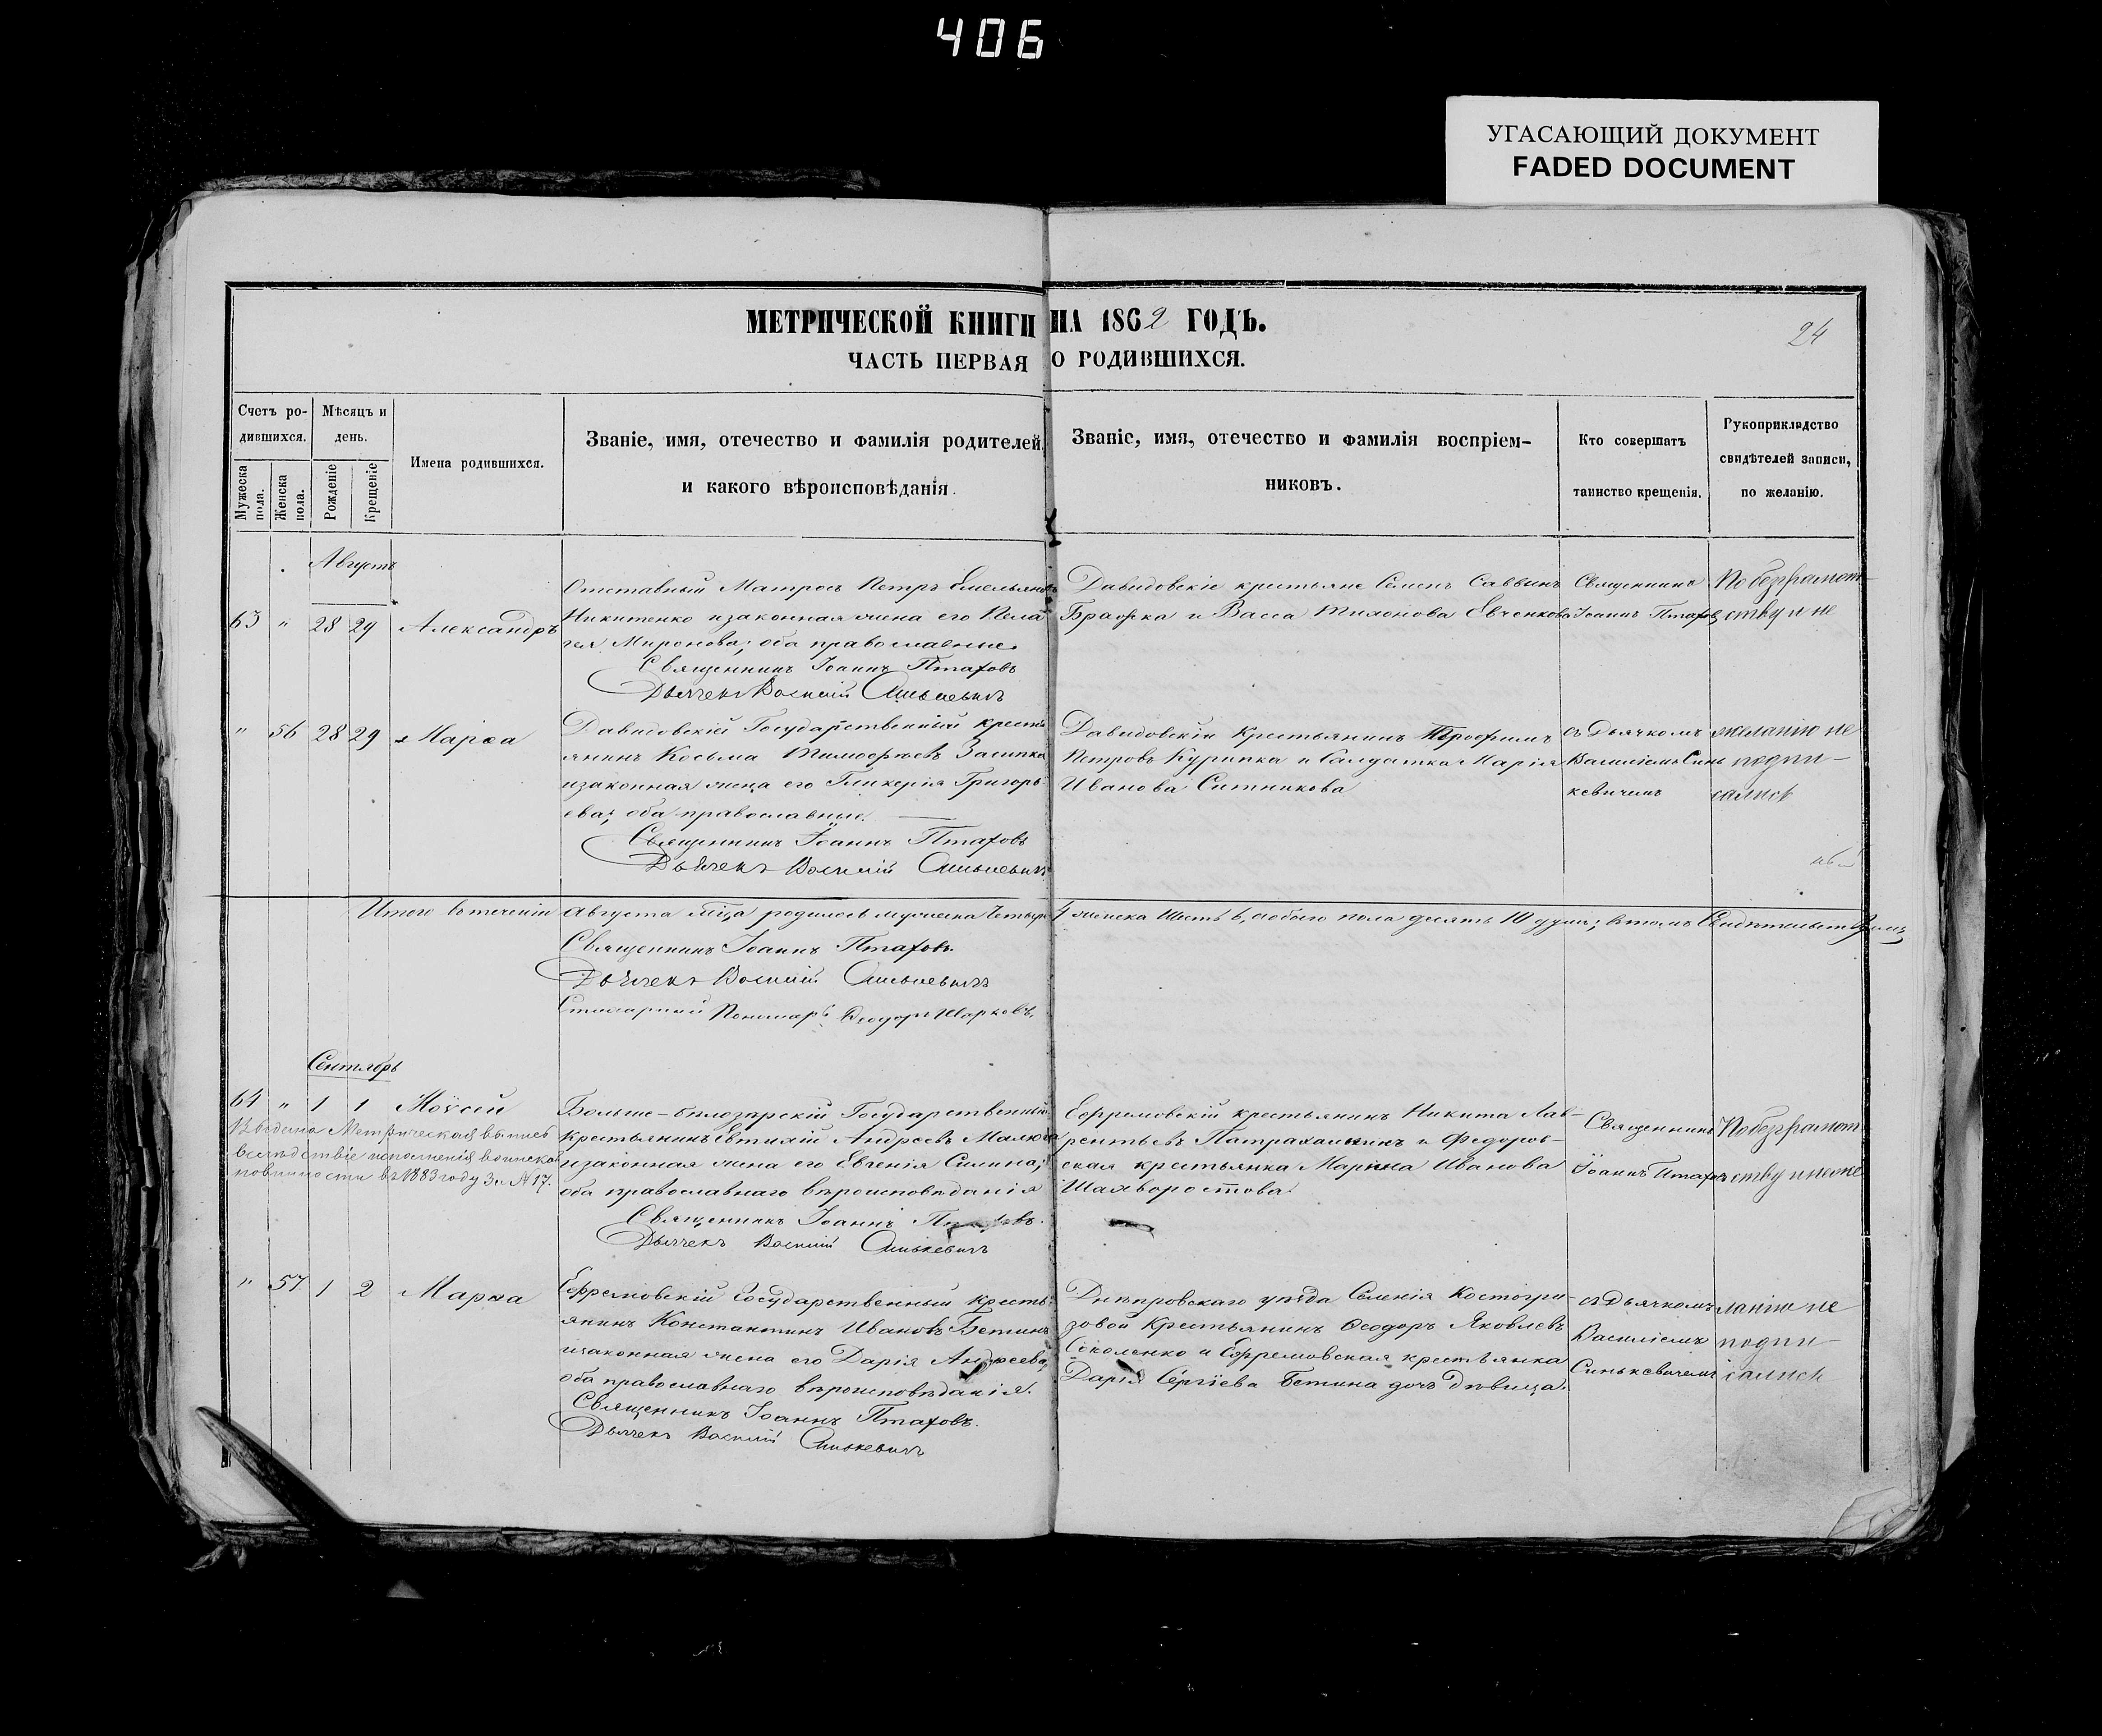 406
УГАСАЮЩИЙ ДОКУМЕНТ
FADED DOCUMENT
МЕТРИЧЕСКОЙ КНИГИ НА 1862 ГОДЪ.
ЧАСТЬ ПЕРВАЯ О РОДИВШИХСЯ.
24
Счетъ ро-
дившихся.
Мужеска пола.
Женска пола.
Мѣсяцъ и
день.
Рожденіе
Крещеніе
Имена родившихся.
Званіе, имя, отечество и фамилія родителей,
и какого вѣроисповѣданія.
Званіе, имя, отечество и фамилія воспріем-
никовъ.
Кто совершатъ
таинство крещенія.
Рукоприкладство
свидѣтелей записи,
по желанію.
Августъ
63 " 28 29 Александръ
Отставный Матросъ Петръ Емельяновъ
Никитенко изаконная жена его Пела
гея Миронова; оба православные.
Священникъ Іоаннъ Птаховъ
Дьячекъ Василій Синькевичъ
Давидовскіе крестьяне Семенъ Саввинъ
и Васса Тихонова Евченкова
Священникъ
Іоаннъ Птаховъ
По безграмот-
ству и не
" 56 28 29 Марѳа
Давидовскій Государственный кресть
янинъ Косьма Тимофѣевъ Засипка
изаконная жена его Гликерія Григорь
ева; оба православные.
Священникъ Іоаннъ Птаховъ
Дьячекъ Василій Синькевичъ
Давидовскій Крестьянинъ Трофимъ
Петровъ Курипка и Солдатка Марія
Иванова Ситникова
съ Дьячкомъ
Василіемъ Синь
кевичемъ
желанію не
подпи-
сались
Итого втеченіи Августа мѣца родилось мужеска Четыре 4 женска Шесть 6, обоего пола десять 10 душъ; втомъ Свидѣтельствуемъ
Священникъ Іоаннъ Птаховъ
Дьячекъ Василій Синькевичъ
Пономарь Ѳеодоръ Шарковъ.
Сентябрь
64 " 1 1 Моѵсей
Метрическая выпись
вслѣдствіе исполненія воинской
повинности въ 1883 году За № 17.
Больше-бѣлозарскій Государственный
Крестьянинъ Евтихій Андреевъ Малюга
изаконная жена его Евгенія Силина;
оба православнаго вѣроисповѣданія
Священникъ Іоаннъ Птаховъ.
Дьячекъ Василій Синькевичъ
Ефремовскій крестьянинъ Никита Лав-
рентьевъ и Федоров-
ская крестьянка Марина Иванова
Шахворостова.
Священникъ
Іоаннъ Птаховъ
По безграмот
ству и неже
" 57 1 2 Марѳа
Ефремовскій Государственный кресть-
янинъ Константинъ Ивановъ Бетинъ
изаконная жена его Дарія Андреева,
оба православнаго вѣроисповѣданія.
Священникъ Іоаннъ Птаховъ.
Дьячекъ Василій Синькевичъ
Днѣпровскаго уѣзда Селенія Костогри-
зовой Крестьянинъ Ѳеодоръ Яковлевъ
Соколенко и Ефремовская крестьянка
Дарія Сергіева Бетина дочь дѣвица.
съ Дьячкомъ
Василіемъ
Синькевичемъ
ланію не
подпи-
сались